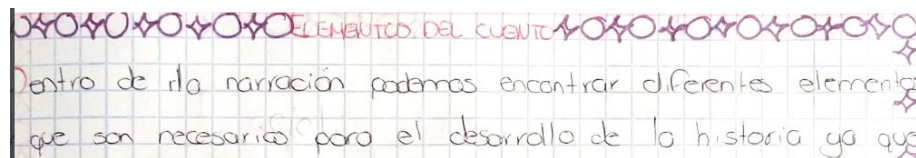 ELEMENTOS DEL CUENTO
Dentro de la narración podemos encontrar diferentes elementos
que son necesarios para el desarrollo de la historia ya que